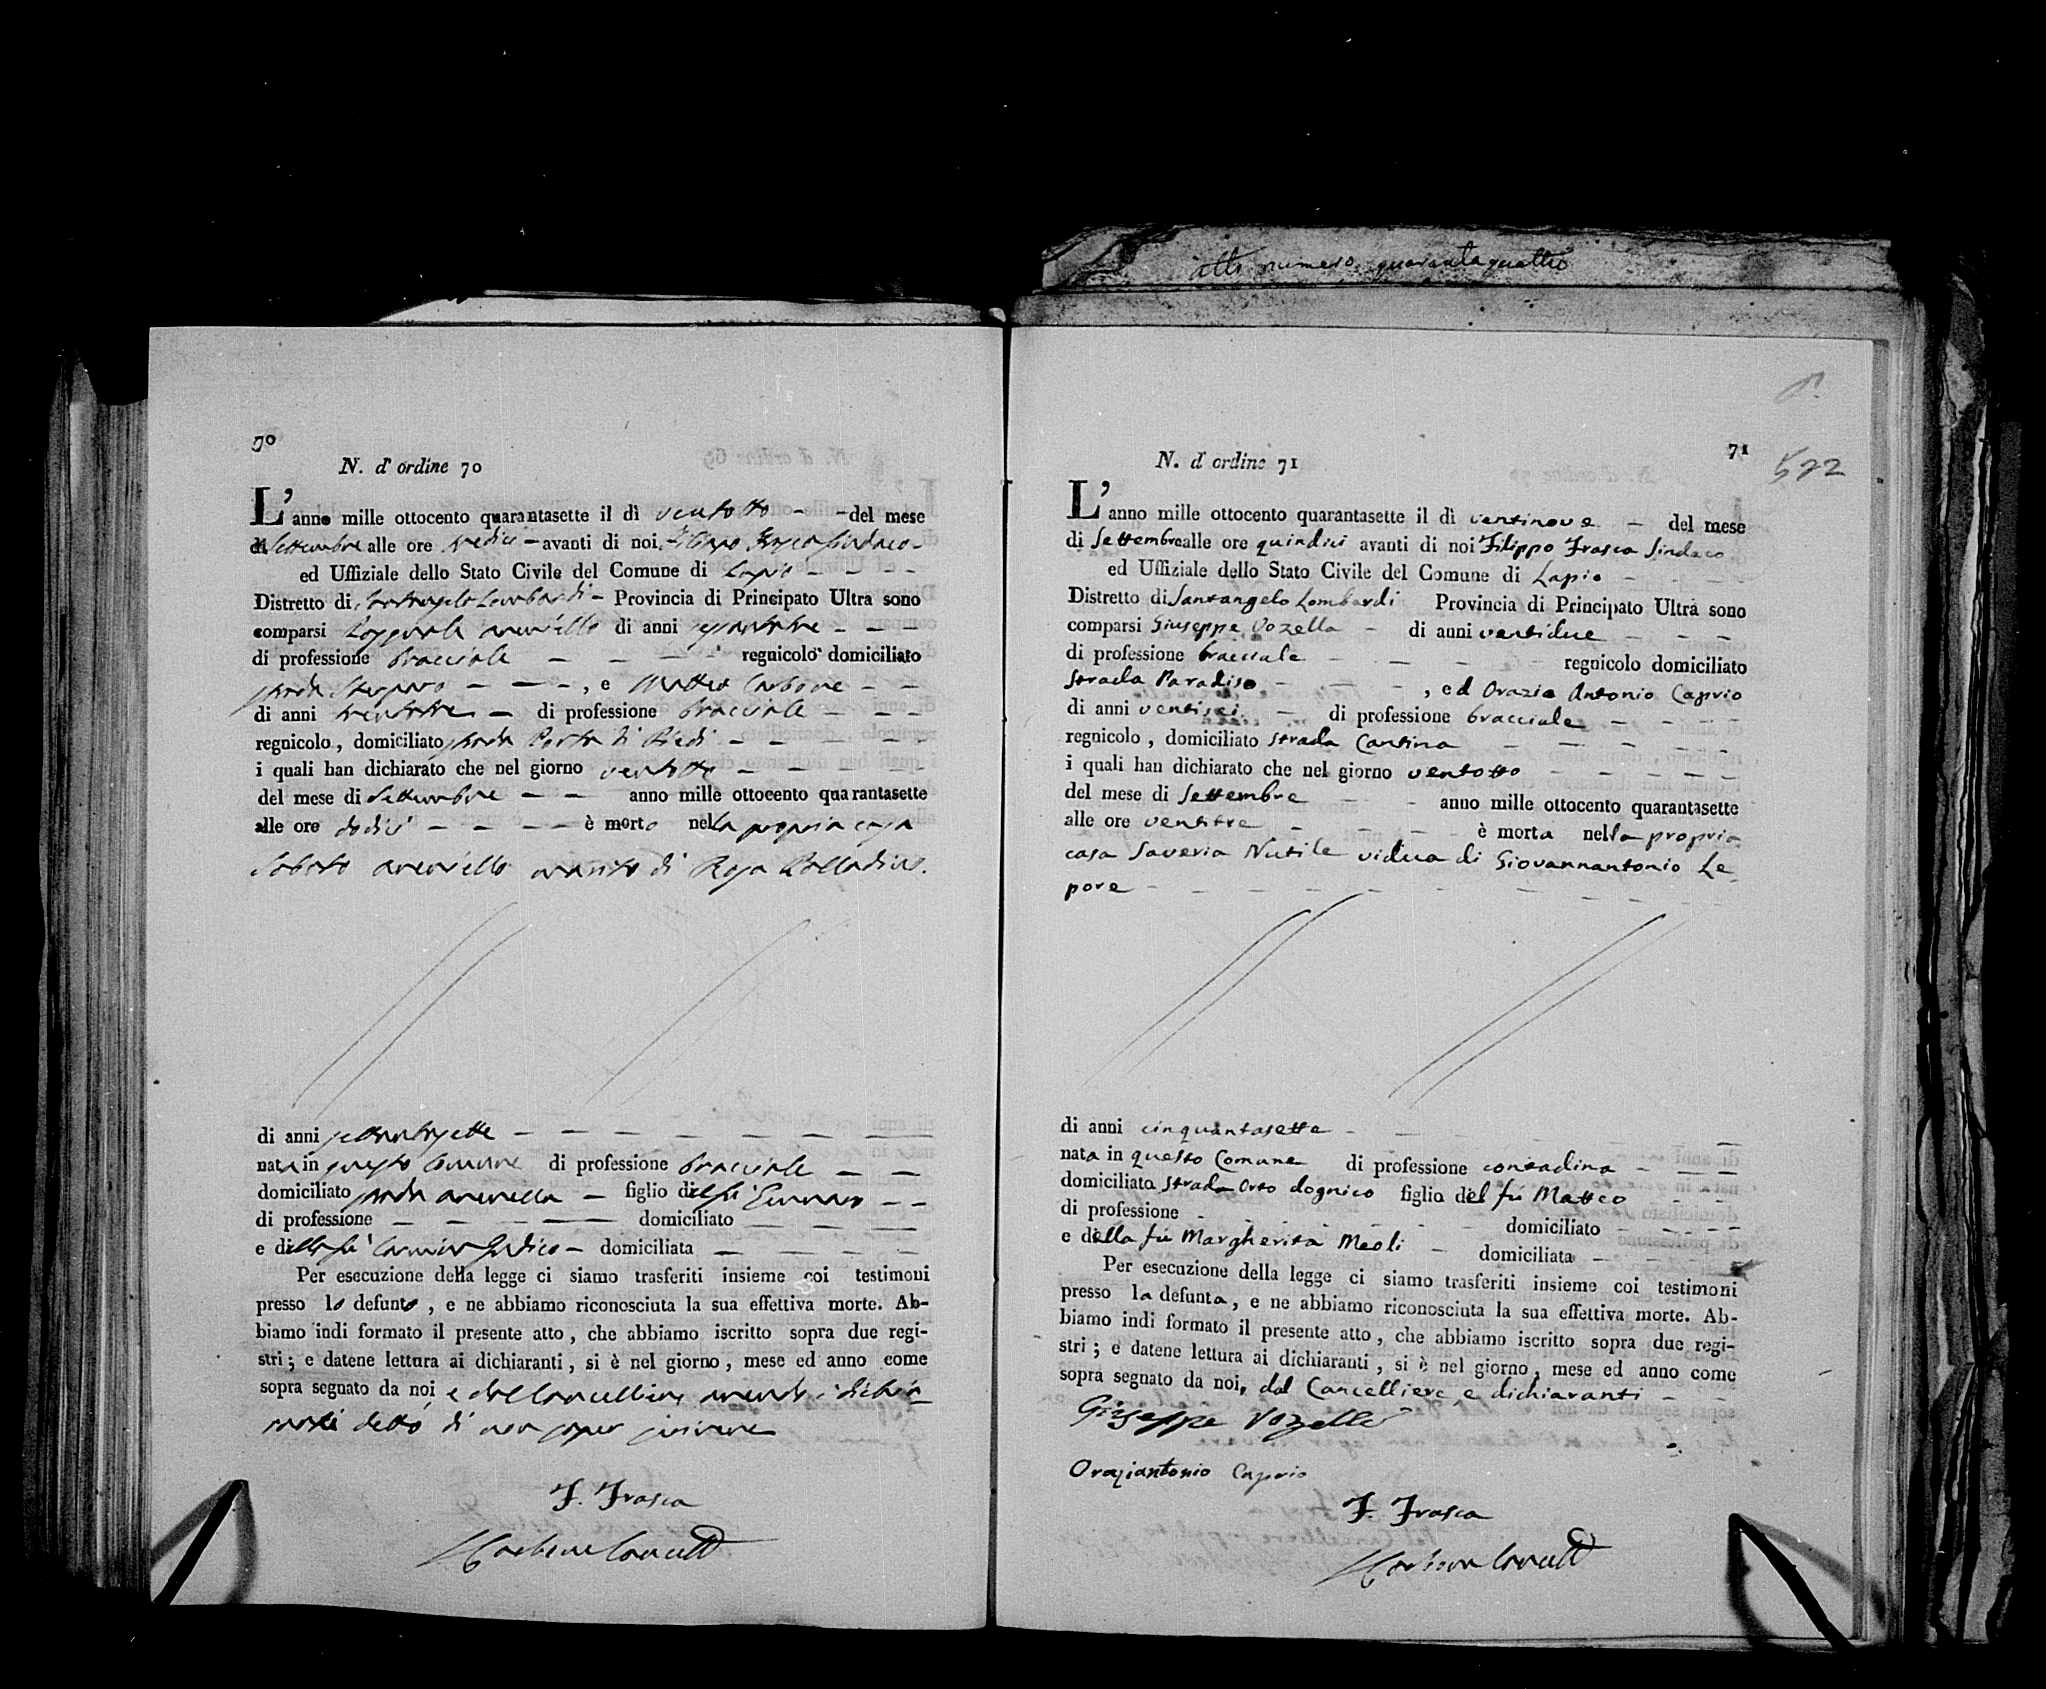 atto numero quarantaquattro
70
N. d' ordine 70
L' anno mille ottocento quarantasette il dì ventotto del mese
di Settembre alle ore tredici avanti di noi Filippo Frasca Sindaco
ed Uffiziale dello Stato Civile del Comune di Lapio
Distretto di Santangelo Lombardi Provincia di Principato Ultra sono
comparsi di anni sessantatre
di professione bracciale regnicolo domiciliato
strada , e Matteo Carbone
di anni trentatre di professione bracciale
regnicolo, domiciliato strada Porta di Piedi
i quali han dichiarato che nel giorno ventotto
del mese di Settembre anno mille ottocento quarantasette
alle ore dodici è morto nella propria casa
Sabato marito di Rosa
di anni settantasette
nato in questo Comune di professione bracciale
domiciliato strada figlio del fu Gennaro
di professione domiciliato
e della fu domiciliata
Per esecuzione della legge ci siamo trasferiti insieme coi testimoni
presso lo defunto, e ne abbiamo riconosciuta la sua effettiva morte. Ab-
biamo indi formato il presente atto, che abbiamo iscritto sopra due regi-
stri; e datene lettura ai dichiaranti, si è nel giorno, mese ed anno come
sopra segnato da noi e dal Cancelliere avendo i dichia-
ranti detto di non saper scrivere
F. Frasca
Carbone
71
522
N. d' ordine 71
L' anno mille ottocento quarantasette il dì ventinove del mese
di Settembre alle ore quindici avanti di noi Filippo Frasca Sindaco
ed Uffiziale dello Stato Civile del Comune di Lapio
Distretto di Santangelo Lombardi Provincia di Principato Ultra sono
comparsi Giuseppe Vozella di anni ventidue
di professione bracciale regnicolo domiciliato
strada Paradiso , ed Orazio Antonio Caprio
di anni ventisei di professione bracciale
regnicolo, domiciliato strada Cantina
i quali han dichiarato che nel giorno ventotto
del mese di Settembre anno mille ottocento quarantasette
alle ore ventitre è morta nella propria
casa Saveria Nutile vidua di Giovannantonio Le
pore
di anni cinquantasette
nata in questo Comune di professione contadina
domiciliata strada Orto dognico figlia del fú Matteo
di professione domiciliato
e della fú Margherita Meoli domiciliata
Per esecuzione della legge ci siamo trasferiti insieme coi testimoni
presso la defunta, e ne abbiamo riconosciuta la sua effettiva morte. Ab-
biamo indi formato il presente atto, che abbiamo iscritto sopra due regi-
stri; e datene lettura ai dichiaranti, si è nel giorno, mese ed anno come
sopra segnato da noi, dal Cancelliere e dichiaranti
Giuseppe Vozella
Oraziantonio Caprio
F. Frasca
Carbone